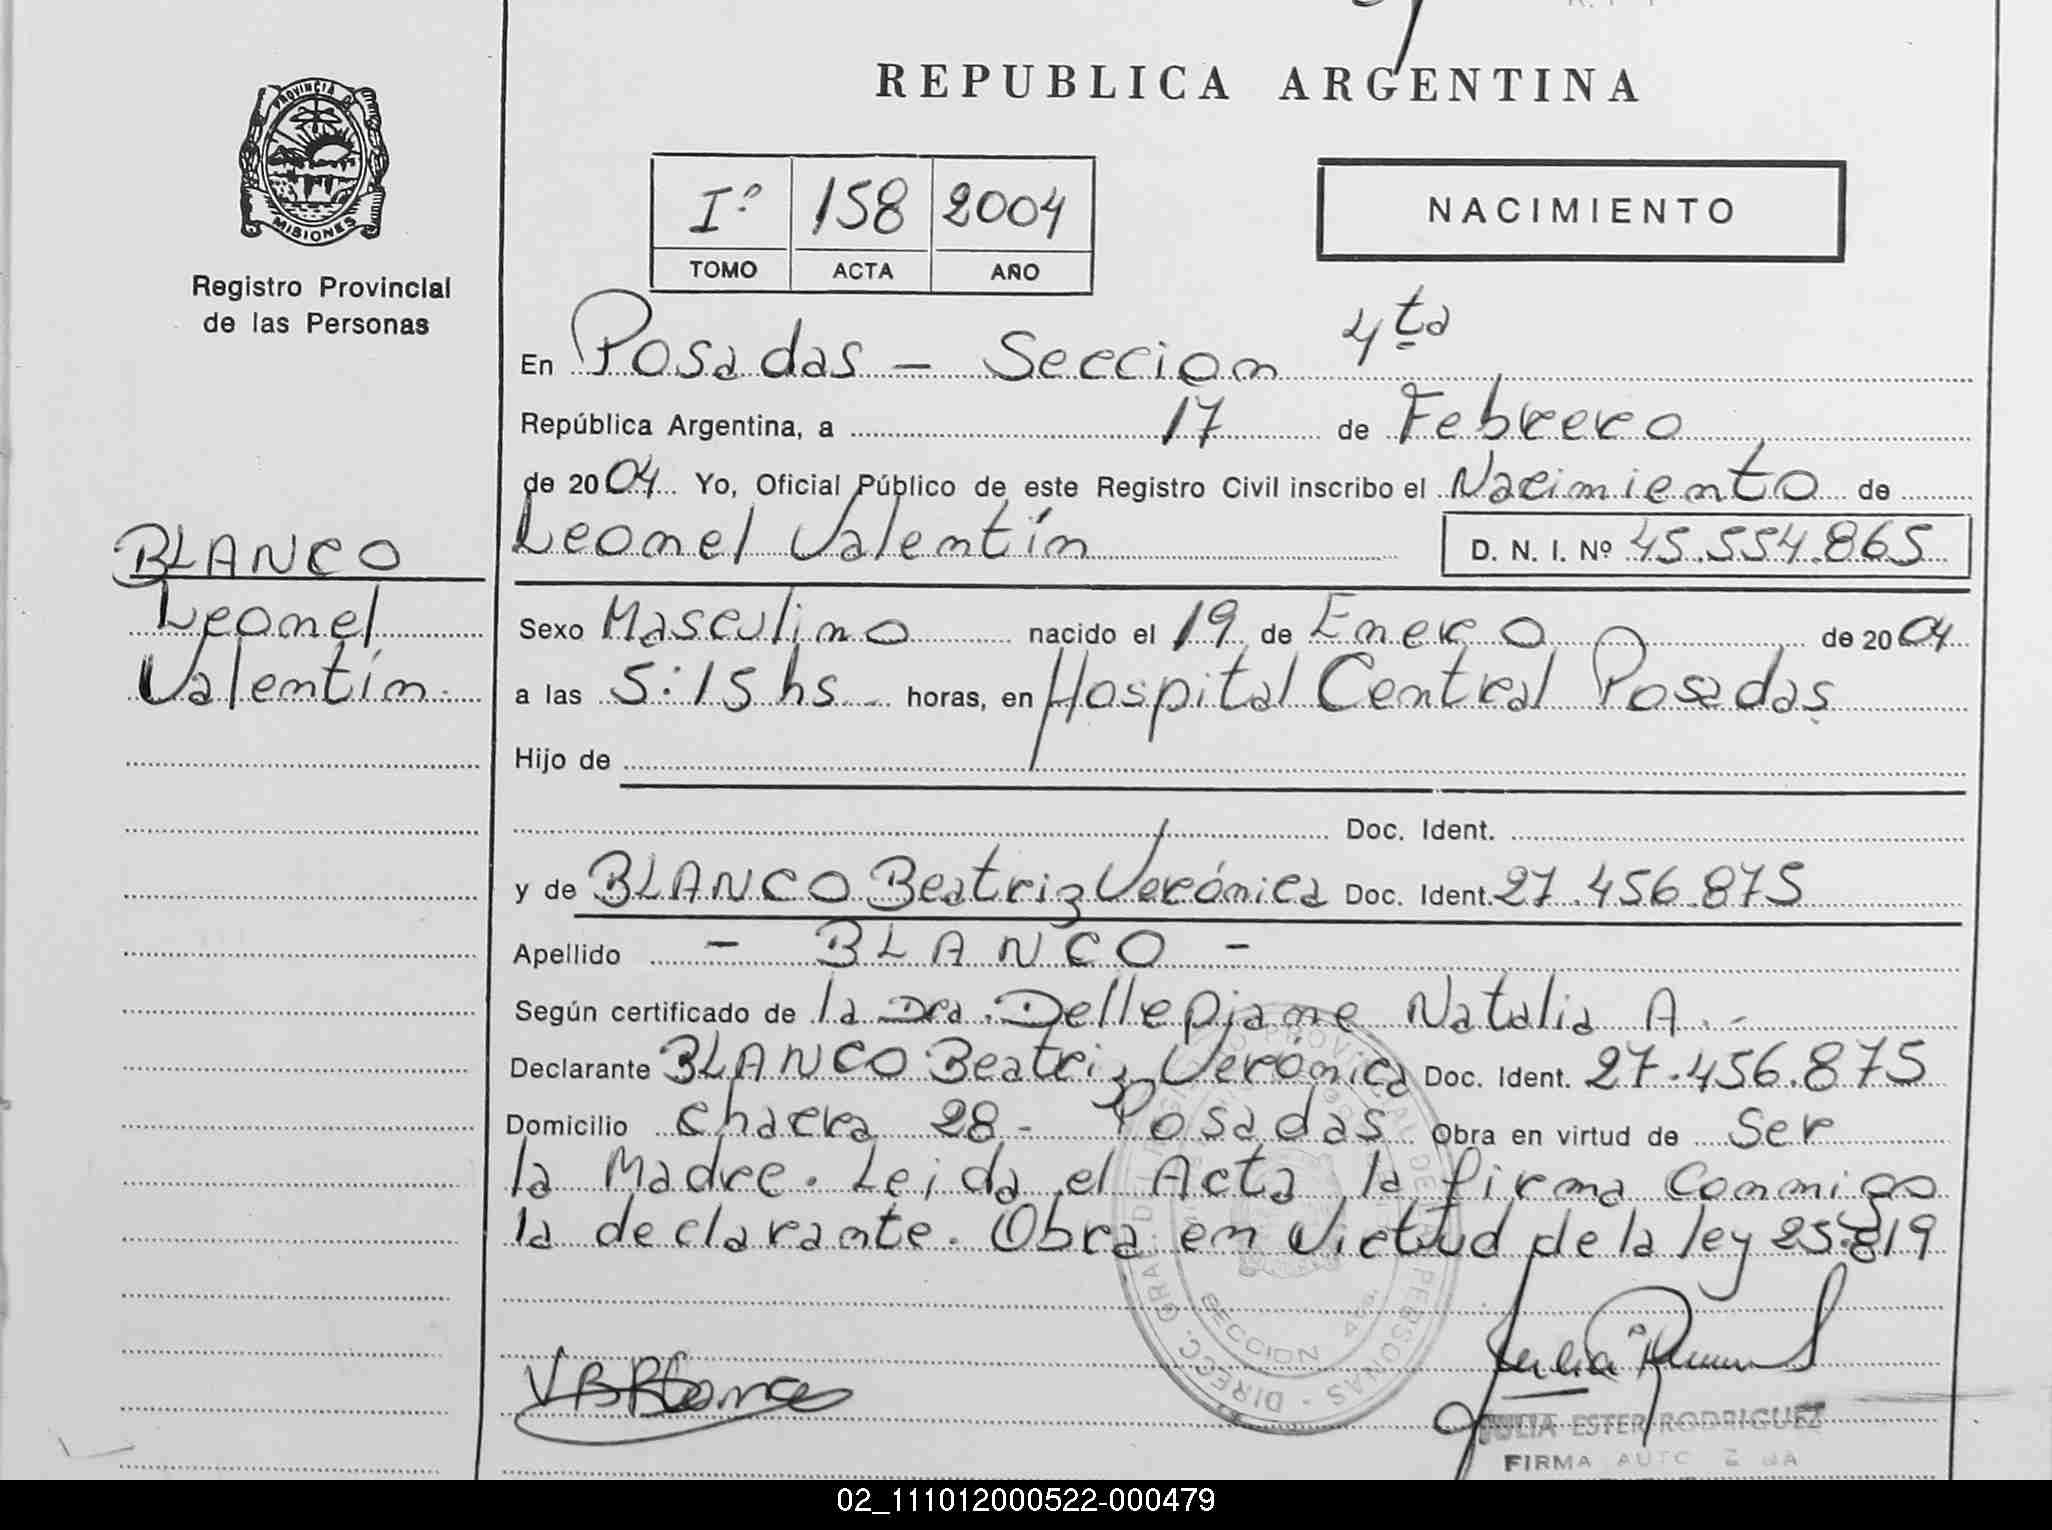 REPUBLICA ARGENTINA
PROVINCIA DE
MISIONES
Registro Provincial
de las Personas
Iº 158 2004
TOMO ACTA AÑO
NACIMIENTO
En Posadas - Seccion 4ta
República Argentina, a 17 de Febrero
de 2004 Yo, Oficial Público de este Registro Civil inscribo el Nacimiento de
Leonel Valentín D. N. I. Nº 45.554.865
BLANCO
Leonel
Valentín.
Sexo Masculino nacido el 19 de Enero de 2004
a las 5:15 hs horas, en Hospital Central Posadas
Hijo de
Doc. Ident.
y de BLANCO Beatriz Verónica Doc. Ident. 27.456.875
Apellido - BLANCO -
Según certificado de la Dra. Dellepiane Natalia A.-
Declarante BLANCO Beatriz Verónica Doc. Ident. 27.456.875
Domicilio chacra 28 - Posadas Obra en virtud de ser
la Madre. Leida el Acta la firma conmigo
la declarante. Obra en virtud de la ley 25.819
SECCION
PERSONAS - DIRECC. GRAL. DEL
JULIA ESTER RODRIGUEZ
FIRMA
02_111012000522-000479